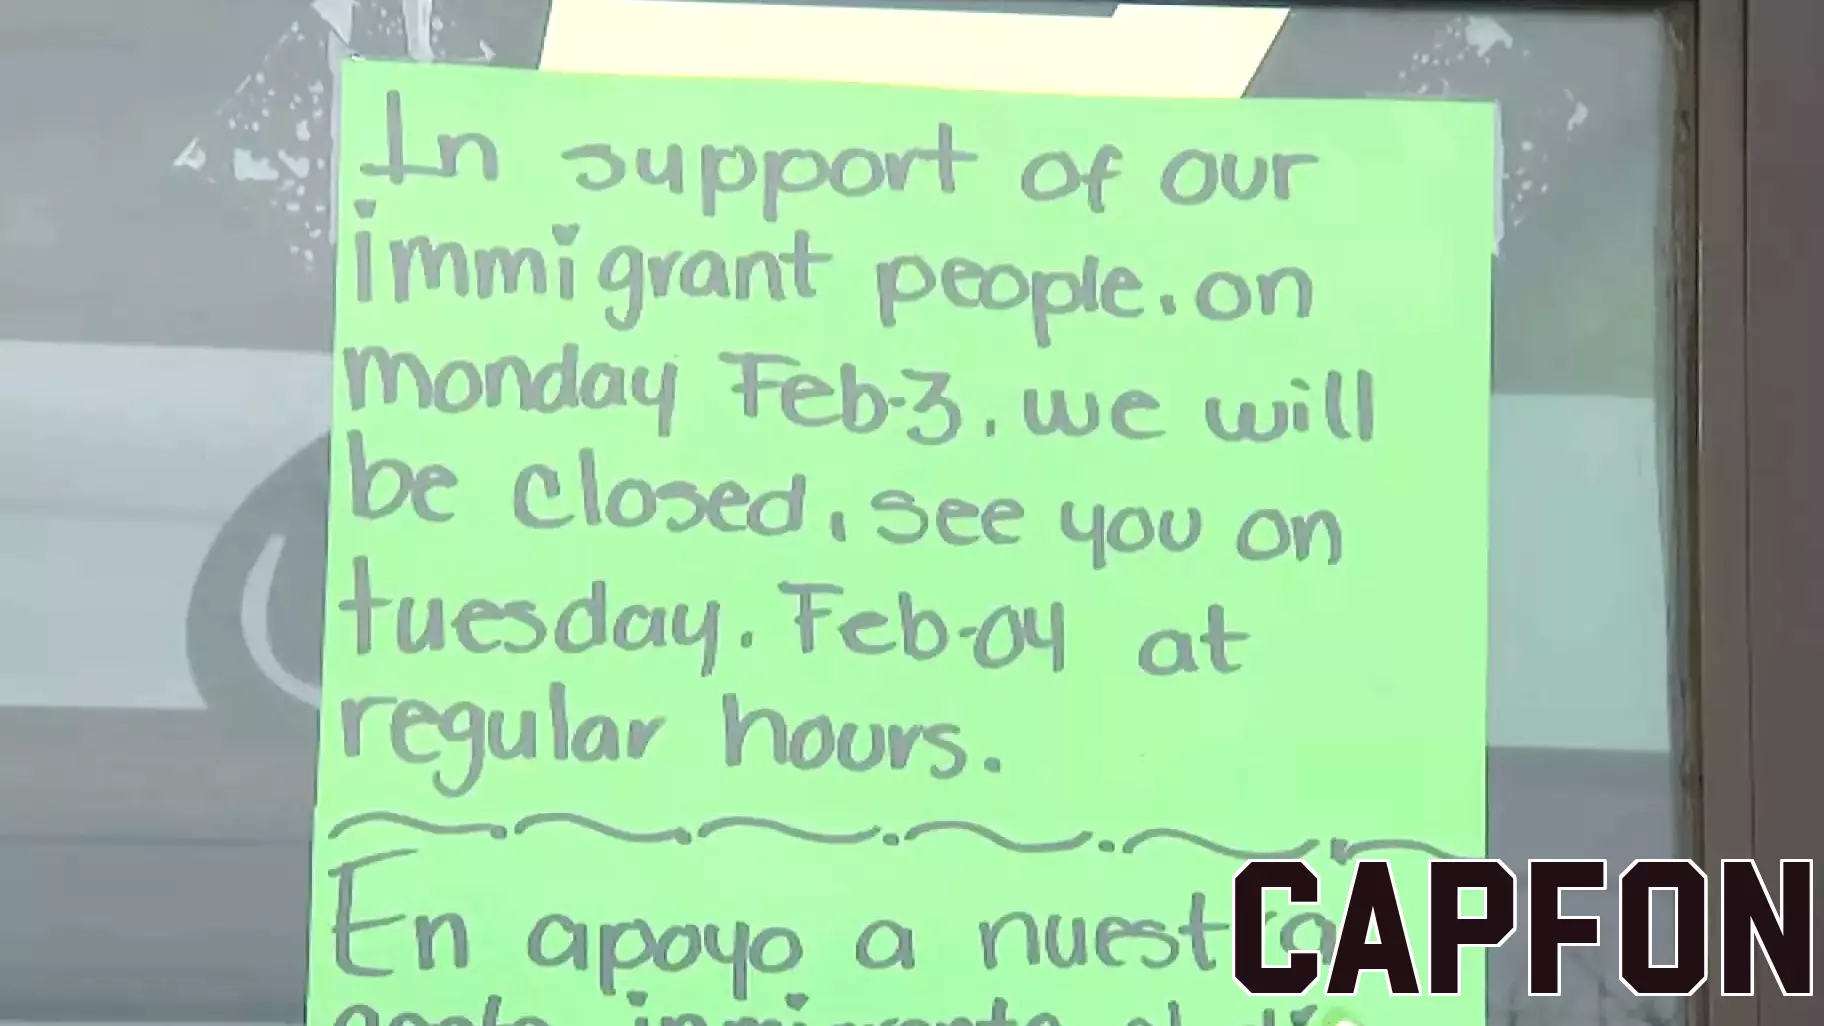 In support of our
immigrant people. on
monday Feb-3. we will
be closed, see you on
tuesday. Feb-04 at
regular hours.
En apoyo a nuestra
gente inmigrante el
CAPFON